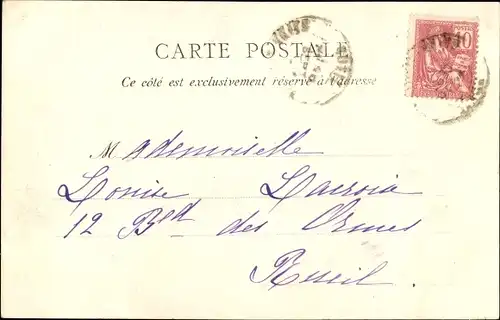 CARTE POSTALE
Ce côté est exclusivement réservé à l'adresse
10
Mademoiselle
Louise Lacroix
12 Bd des Ormes
Rueil